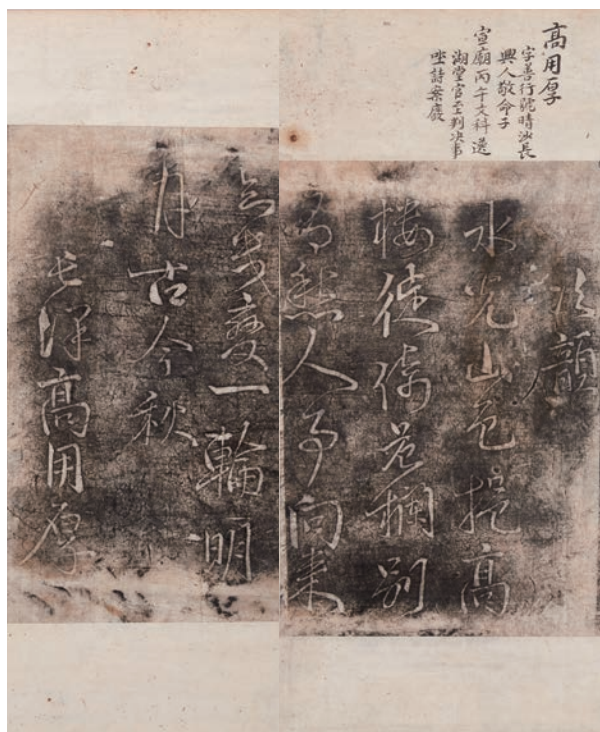 高用厚
字善行號晴沙長
興人敬命子
宣廟丙午文科選
湖堂官至判决事
坐詩案廢
次韻
水光山色挹高
樓徙倚危欄別
有愁人事向來
知幾變一輪明
月古今秋
長澤高用厚